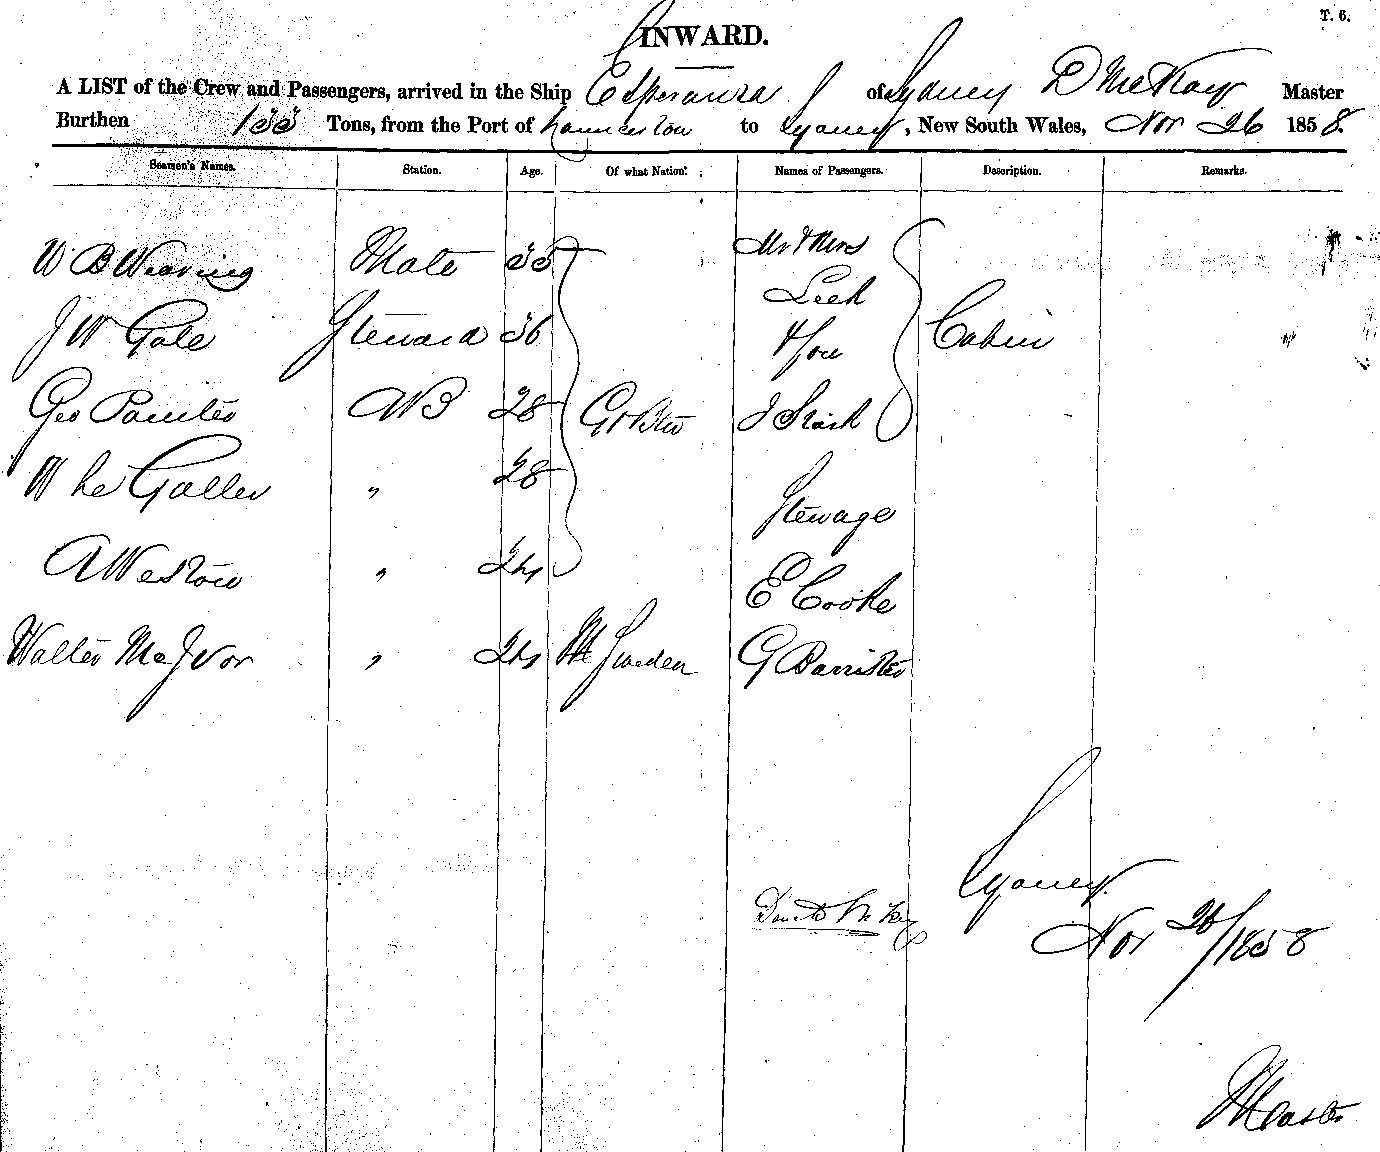 T. 6.
INWARD.
A LIST of the Crew and Passengers, arrived in the Ship Esperanza of Sydney D McKay Master
Burthen 133 Tons, from the Port of Launceston to Sydney, New South Wales, Nov 26 1858.
Seamen's Names. Station. Age. Of what Nation. Names of Passengers. Description. Remarks.
W B Weaving Mate 33 Mr & Mrs
Leek
J W Gale Steward 36 & Son Cabin "
Geo Painter AB 28 Gt Btn J Stark
W Le Galler " 28
Stewage
A Weston " 24 E Cooke
Walter McIvor " 24 Sweden G Barrister
Sydney
Nov 26/1858
Master